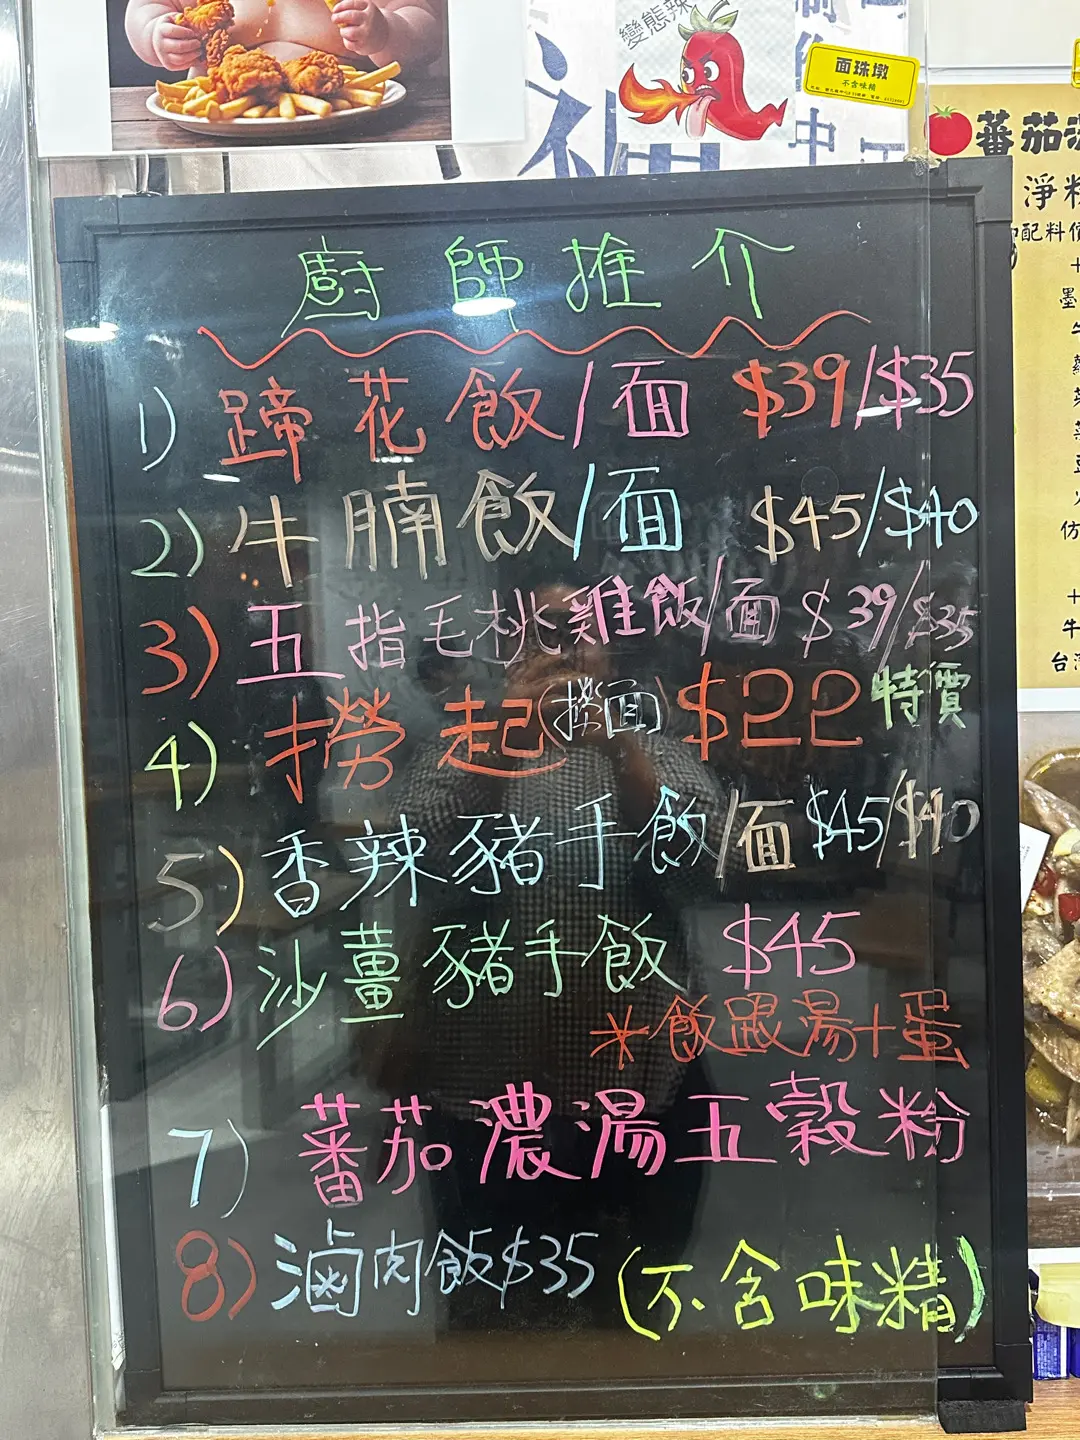 變態辣
面珠墩
不含味精
福
中
蕃茄濃
淨粉
配料價
墨
廚師推介
1) 蹄花飯/面 $39/$35
2) 牛腩飯/面 $45/$40
3) 五指毛桃雞飯/面 $39/$35
4) 撈起(撈面) $22 特價
5) 香辣豬手飯/面 $45/$40
6) 沙薑豬手飯 $45
*飯跟湯+蛋
7) 蕃茄濃湯五穀粉
8) 滷肉飯 $35 (不含味精)
仿
牛
台灣